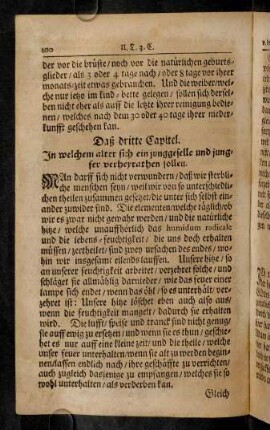 100 II. T. 3. C.
der vor die brüste/ noch vor die natürlichen geburts-
glieder/ als 3 oder 4 tage nach/ oder 8 tage vor ihrer
monats-zeit etwas gebrauchen. Und die weiber/ wel-
che nur jetzo im kind-bette gelegen/ sollen sich dersel-
ben nicht eher als auff die letzte ihrer reinigung bedie-
nen/ welches nach dem 30 oder 40 tage ihrer nieder-
kunfft geschehen kan.
Daß dritte Capitel.
In welchem alter sich ein junggeselle und jung-
fer verheyrathen sollen.
MAn darff sich nicht verwundern/ daß wir sterbli-
che menschen seyn/ weil wir von so unterschiedli-
chen theilen zusammen gesetzt/ die unter sich selbst ein-
ander zuwider sind. Die elementen/ welche täglich/ ob
wir es zwar nicht gewahr werden/ und die natürliche
hitze/ welche unauffhörlich das humidum radicale
und die lebens-feuchtigkeit/ die uns doch erhalten
müssen/ zertheilet/ sind zwey ursachen des endes/ wo-
hin wir insgesamt eilends lauffen. Unsere hitze/ so
an unserer feuchtigkeit arbeitet/ verzehret solche/ und
schläget sie allmählig darnieder/ wie das feuer einer
lampe sich endet/ wenn das öhl/ so es unterhält/ ver-
zehret ist: Unsere hitze löschet eben auch also aus/
wenn die feuchtigkeit mangelt/ dadurch sie erhalten
wird. Die lufft/ speise und tranck sind nicht genug/
sie auff ewig zu ersetzen/ und wenn sie es thun/ geschie-
het es nur auff eine kleine zeit/ und die theile/ welche
unser feuer unterhalten/ wenn sie alt zu werden begin-
nen/ lassen endlich nach/ ihre geschäffte zu verrichten/
auch zugleich dasjenige zu empfangen/ welches sie so
wohl unterhalten/ als verderben kan.
Gleich